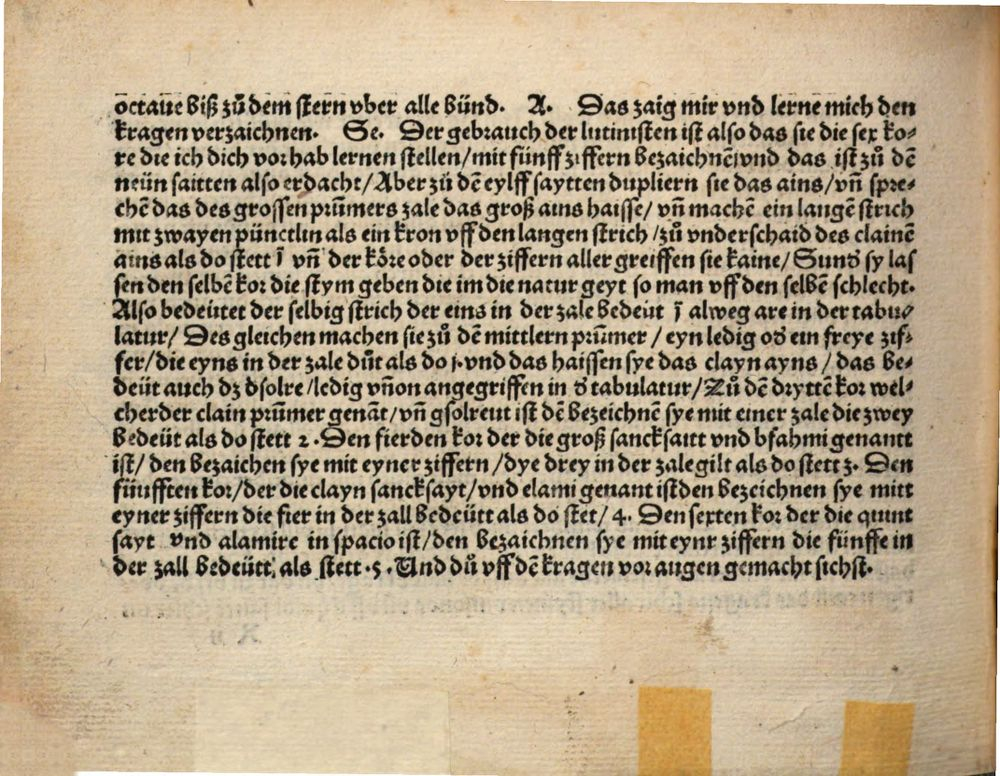 octaue biß zů dem stern vber alle bünd. A. Das zaig mir vnd lerne mich den
kragen verzaichnen. Se. Der gebrauch der lutinisten ist also das sie die sex ko⸗
re die ich dich vor hab lernen stellen/mit fünff ziffern bezaichnē/vnd das ist zů dē
neün saitten also erdacht/Aber zů dē eylff saytten dupliern sie das ains/vn̄ spre⸗
chē das des grossen prūmers zale das groß ains haisse/ vn̄ machē ein langē strich
mit zwayen pünctlin als ein kron vff den langen strich /zů vnderschaid des clainē
ains als do stett ī vn̄ der köre oder der ziffern aller greiffen sie kaine/Sund̄ sy las
sen den selbē kor die stym geben die im die natur geyt so man vff den selbē schlecht.
Also bedeütet der selbig strich der eins in der zale bedeüt ī alweg are in der tabu⸗
latur/ Des gleichen machen sie zů dē mittlern prūmer / eyn ledig od̄ ein freye zif⸗
fer/die eyns in der zale dūt als do j.vnd das haissen sye das clayn ayns / das be⸗
deüt auch dz dsolre/ledig vn̄on angegriffen in d̄ tabulatur/Zů dē dryttē kor wel⸗
cherder clain prūmer genāt/vn̄ gsolreut ist dē bezeichnē sye mit einer zale die zwey
bedeüt als do stett 2.Den fierden kor der die groß sancksaitt vnd bfahmi genantt
ist/ den bezaichen sye mit eyner ziffern /dye drey in der zale gilt als do stett 3. Den
füufften kor/der die clayn sancksayt/vnd elami genant ist den bezeichnen sye mitt
eyner ziffern die fier in der zall bedeütt als do stet/ 4. Den sexten kor der die quint
sayt vnd alamire in spacio ist/den bezaichnen sye mit eynr ziffern die fünffe in
der zall bedeütt, als stett .5. Und dů vff dē kragen vor augen gemacht sichst.